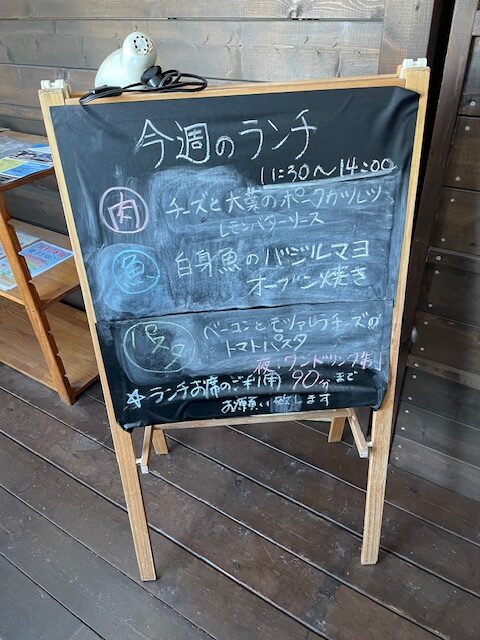 今週のランチ
11:30〜14:00
肉 チーズと大葉のポークカツレツ
レモンバターソース
魚 白身魚のバジルマヨ
オーブン焼き
パスタ ベーコンとモッツァレラチーズの
トマトパスタ
夜・ワンドリンク制
☆ランチお席のご利用90分まで
お願い致します